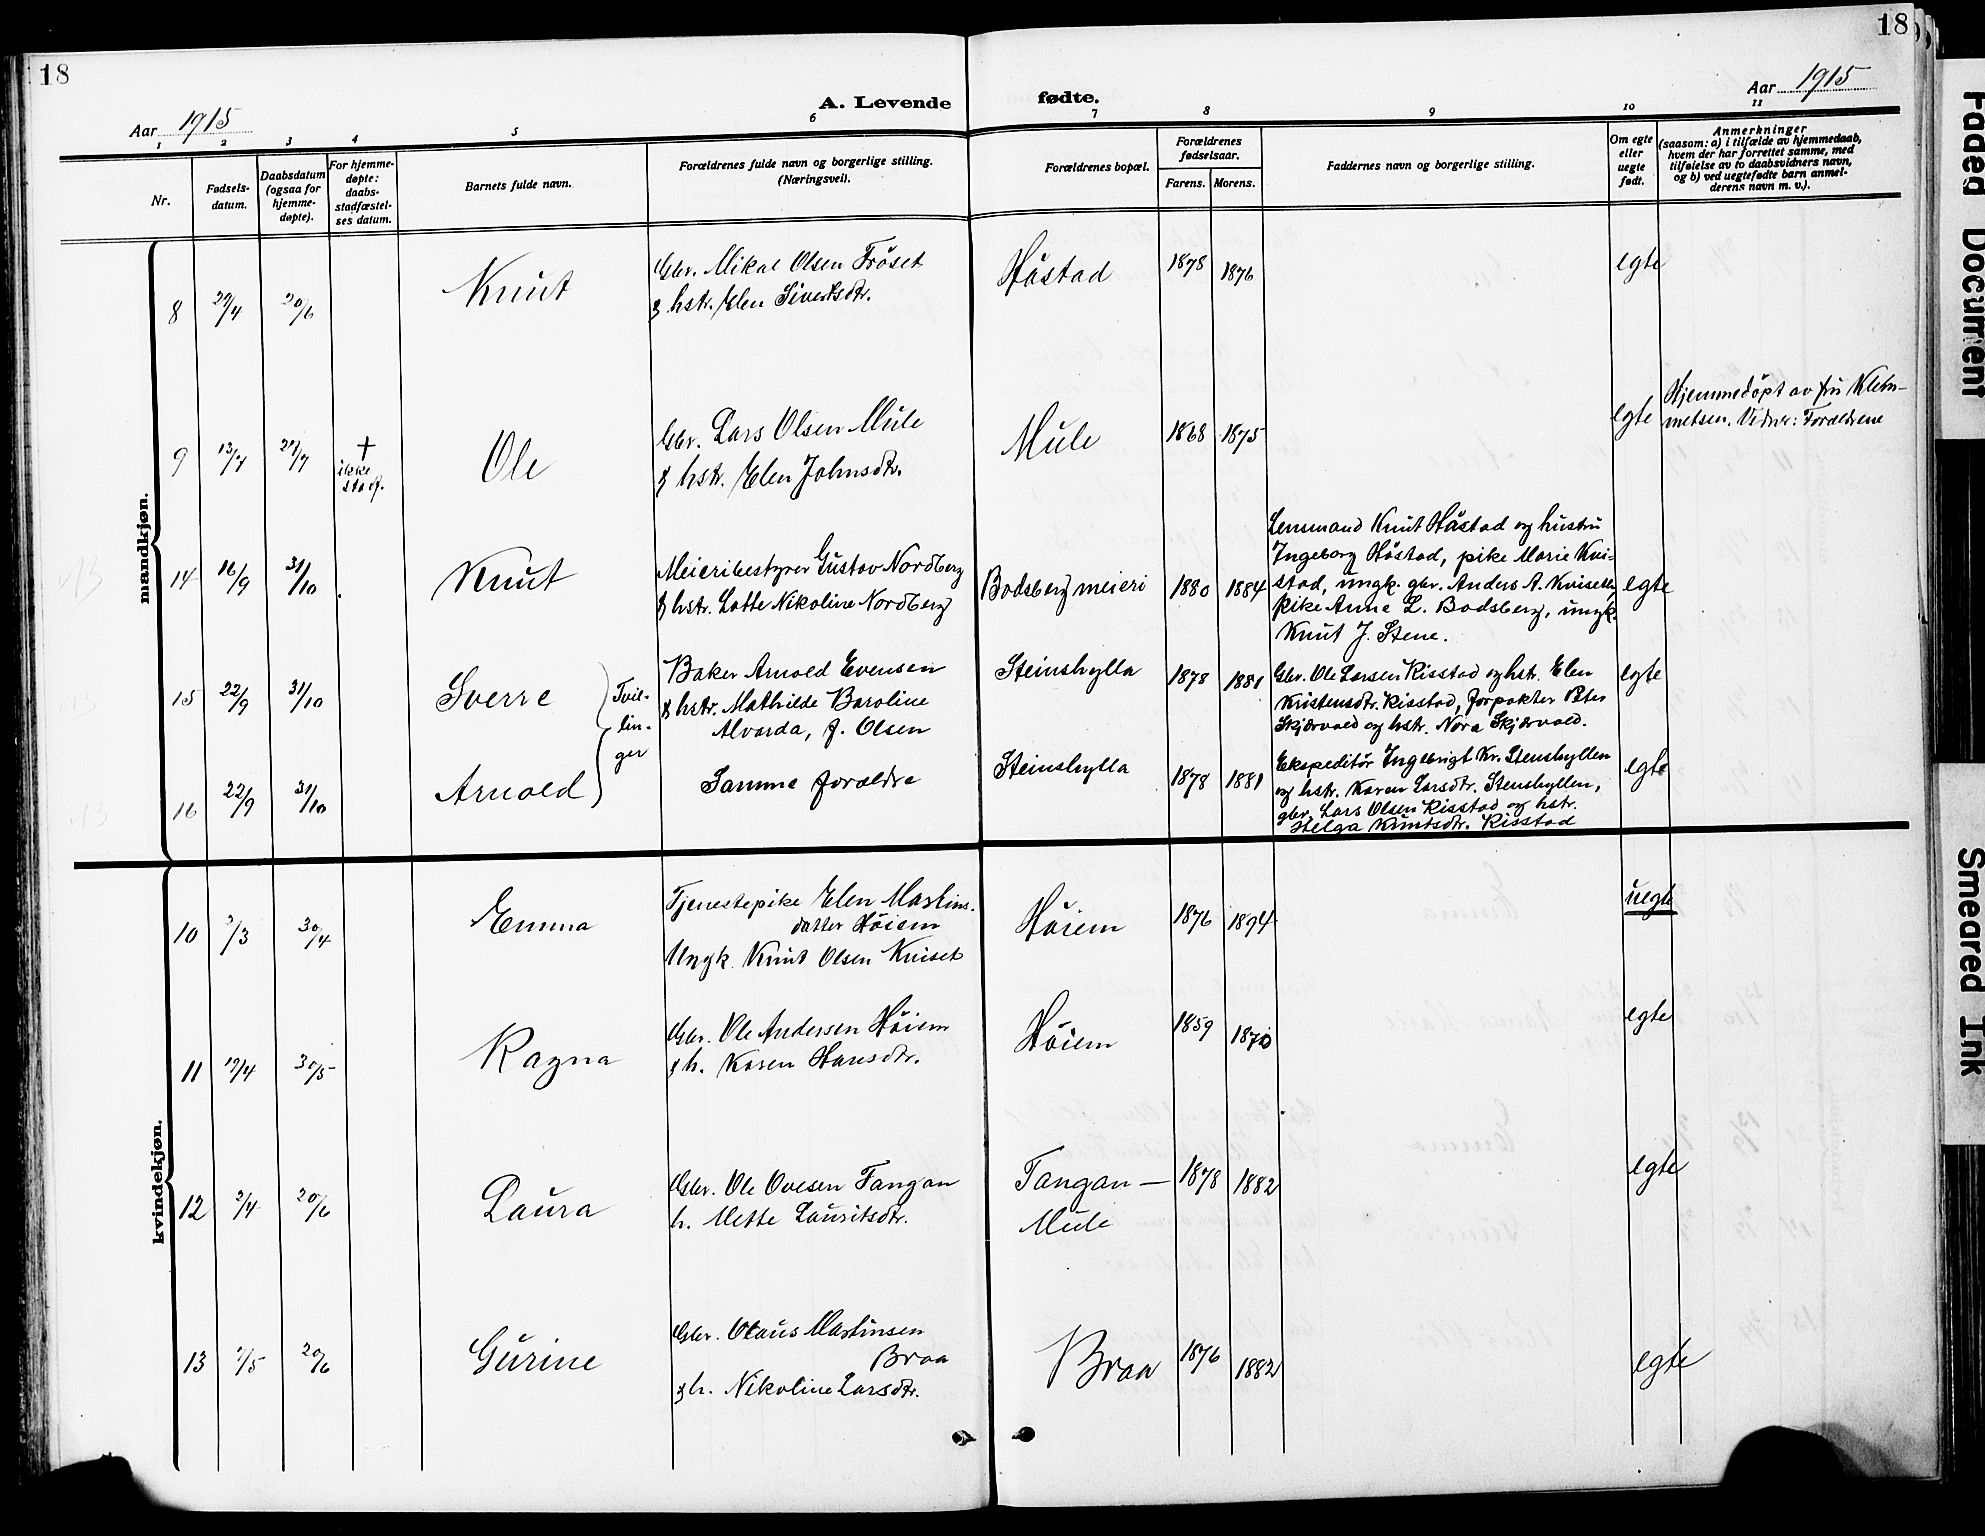 18
18
Aar 1915
A. Levende fødte.
Aar 1915
1 2 3 4 5 6 7 8 9 10 11
Nr.
Fødsels-
datum.
Daabsdatum
(ogsaa for
hjemme-
døpte).
For hjemme-
døpte:
daabs-
stadfæstel-
ses datum.
Barnets fulde navn.
Forældrenes fulde navn og borgerlige stilling.
(Næringsvei).
Forældrenes bopæl.
Forældrenes
fødselsaar.
Farens. Morens.
Faddernes navn og borgerlige stilling.
Om egte
eller
uegte
født.
Anmerkninger
(saasom: a) i tilfælde av hjemmedaab,
hvem der har forrettet samme, med
tilføielse av to daabsvidners navn,
og b) ved uegtefødte barn anmel-
derens navn m. v.).
mandkjøn.
8 29/4 20/6 Knut
Gbr. Mikal Olsen Frøset
& hstr. Elen Sivertsdtr.
Håstad 1878 1876 egte
9 13/7 27/7 + ikke stadf. Ole
Gbr. Lars Olsen Mule
& hstr. Elen Johnsdtr.
Mule 1868 1875 egte
Hjemmedøpt av fru Klem-
metsen. Vidner: Forældrene
14 16/9 31/10 Knut
Meieribestyrer Gustav Nordberg
& hstr. Lotte Nikoline Nordberg
Bodsberg meieri 1880 1884
Lensmand Knut Håstad og hustru
Ingeborg Håstad, pike Marie Kvi-
stad, ungk. gbr. Anders A. Kviset
pike Anne L. Bodsberg, ungk.
Knut J. Stene.
egte
15 22/9 31/10 Sverre
Tvil-
lin-
ger
Baker Arnold Evensen
& hstr. Mathilde Baroline
Alvarda, f. Olsen
Steinshylla 1878 1881
Gbr. Ole Larsen Risstad og hstr. Elen
Kristensdtr. Risstad, forpakter Peter
Skjervold og hstr. Nora Skjervold.
egte
16 22/9 31/10 Arnold
Samme forældre
Steinshylla 1878 1881
Ekspeditør Ingebrigt Kr. Stenshyllen
og hstr. Karen Larsdtr. Stenshyllen,
gbr. Lars Olsen Risstad og hstr.
Helga Knutsdtr. Risstad
egte
kvindekjøn.
10 /3 30/4 Emma
Tjenestepike Elen Martins-
datter Høiem
Ungk. Knut Olsen Kviset
Høiem 1876 1894 uegte
11 17/4 30/5 Ragna
Gbr. Ole Andersen Høiem
& h. Karen Hansdtr.
Høiem 1859 1870 egte
12 2/4 20/6 Laura
Gbr. Ole Ovesen Tangan
h. Mette Lauritsdtr.
Tangan—
Mule
1878 1882 egte
13 /5 20/6 Gurine
Gbr. Olaus Martinsen
Braa
& h. Nikoline Larsdtr.
Braa 1876 1882 egte
Faded Document
Smeared Ink